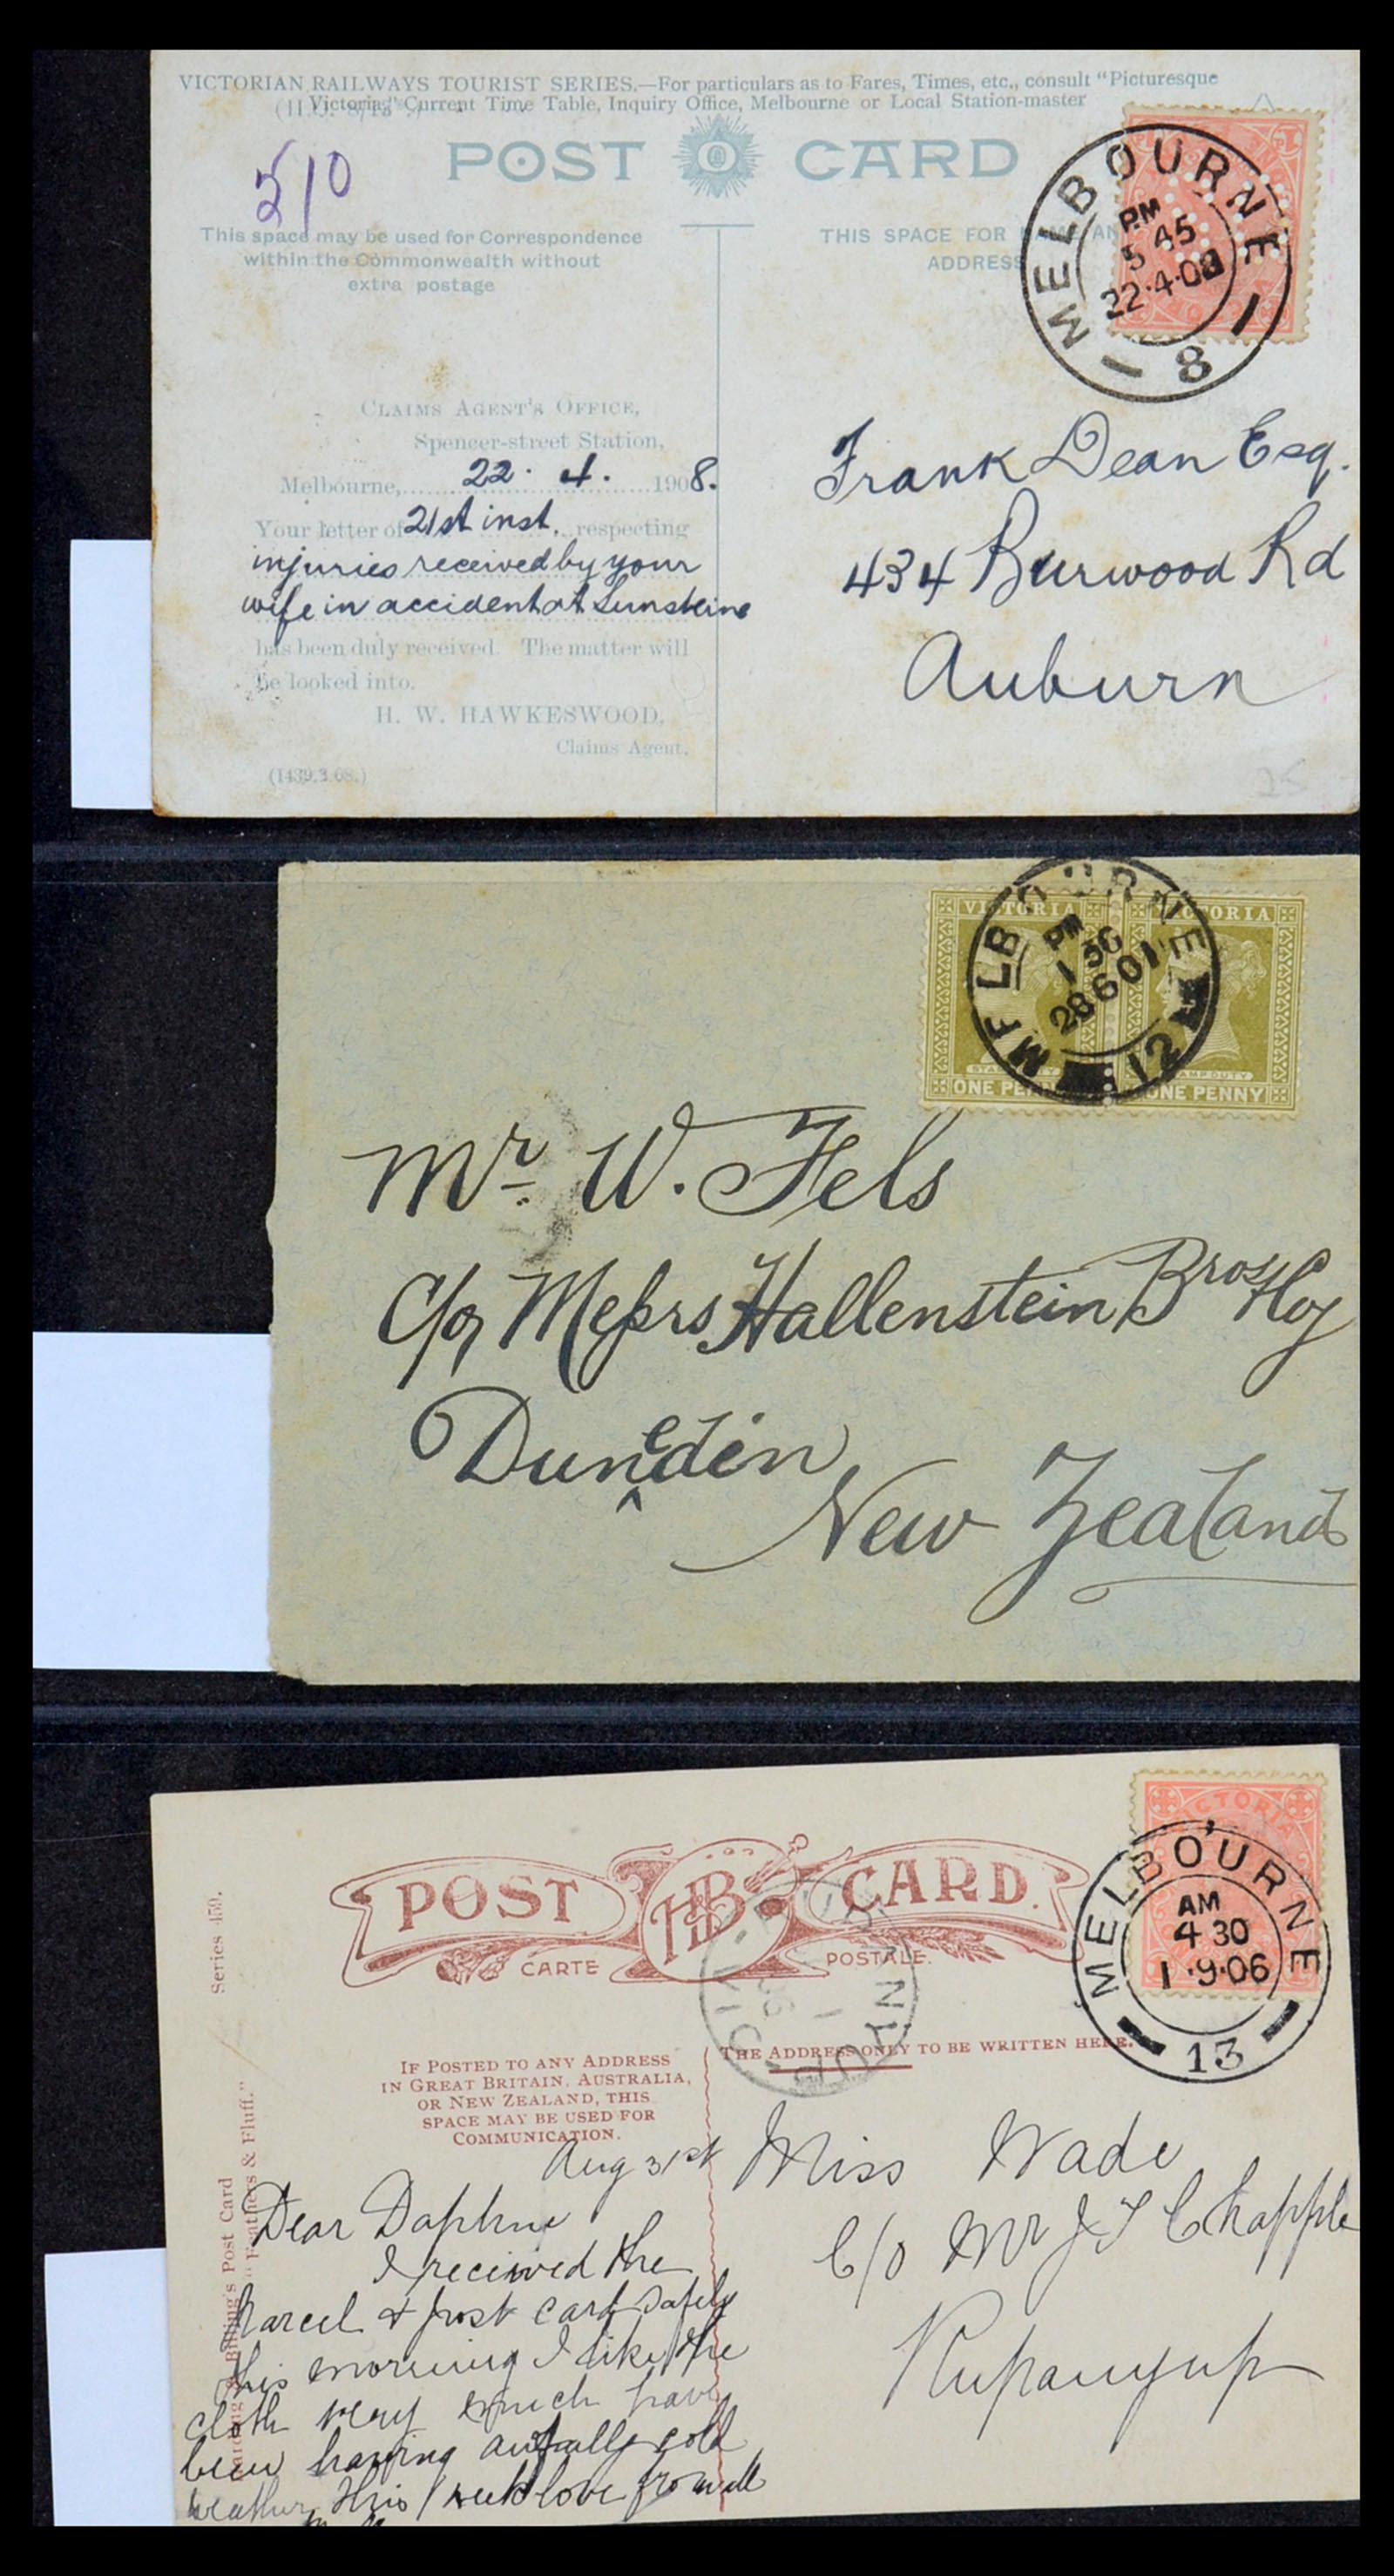 VICTORIAN RAILWAYS TOURIST SERIES.—For particulars as to Fares, Times, etc., consult "Picturesque
Victoria," Current Time Table, Inquiry Office, Melbourne or Local Station-master
POST CARD
5/0
This space may be used for Correspondence
within the Commonwealth without
extra postage
THIS SPACE FOR NAME AN
ADDRESS
MELBOURNE
PM
5 45
22·4·08
8
CLAIMS AGENT'S OFFICE,
Spencer-street Station,
Melbourne, 22. 4. 1908.
Your letter of 21st inst. respecting
injuries received by your
wife in accident at Sunshine
has been duly received. The matter will
be looked into.
H. W. HAWKESWOOD,
Claims Agent.
(1439.3.08.)
Frank Dean Esq.
434 Burwood Rd
Auburn
25
VICTORIA VICTORIA
STAMP DUTY
ONE PENNY ONE PENNY
MELBOURNE
PM
1 30
28 6 01
12
Mr. W. Fels
C/o Messrs Hallenstein Bros
Dunedin
New Zealand
VICTORIA
MELBOURNE
AM
4 30
1·9·06
13
POST CARD.
H B
CARTE POSTALE.
Series 459.
IF POSTED TO ANY ADDRESS
IN GREAT BRITAIN, AUSTRALIA,
OR NEW ZEALAND, THIS
SPACE MAY BE USED FOR
COMMUNICATION.
THE ADDRESS ONLY TO BE WRITTEN HERE.
Billing's Post Card
Feathers & Fluff."
Aug 31st
Dear Daphne
I received the
parcel & post card safely
this morning I like the
cloth very much have
been having awfully cold
weather this week love from all
Miss Wade
C/o Mr J T Chapple
Rupanyup